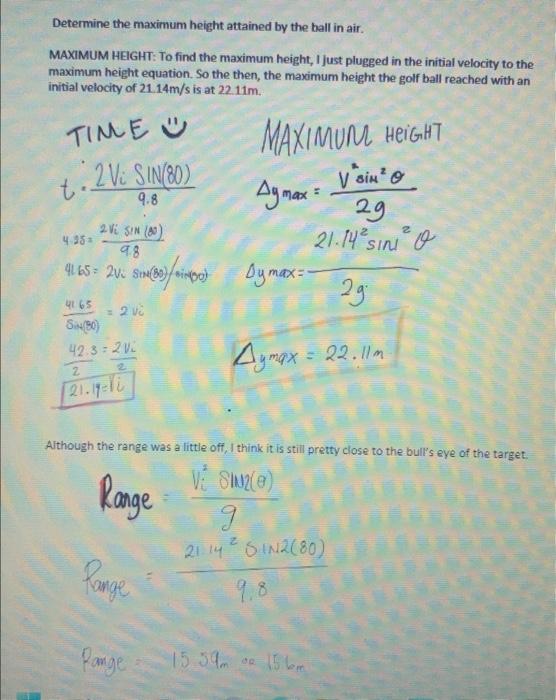 Determine the maximum height attained by the ball in air.
MAXIMUM HEIGHT: To find the maximum height, I just plugged in the initial velocity to the
maximum height equation. So the then, the maximum height the golf ball reached with an
initial velocity of 21.14m/s is at 22.11m.
TIME
t = 2Vi SIN(80)
9.8
4.25 = 2Vi SIN (80)
9.8
41.65 = 2Vi SIN(80)/sin(80)
41.65
SIN(80)
= 2Vi
42.3 = 2Vi
2 2
21.14 = Vi
MAXIMUM HEIGHT
Δy max = V² sin² θ
2g
Δy max = 21.14² sin² θ
2g
Δy max = 22.11m
Although the range was a little off, I think it is still pretty close to the bull's eye of the target.
Range = Vi² SIN2(θ)
g
Range = 21.14² SIN2(80)
9.8
Range = 15.59m or 15.6m